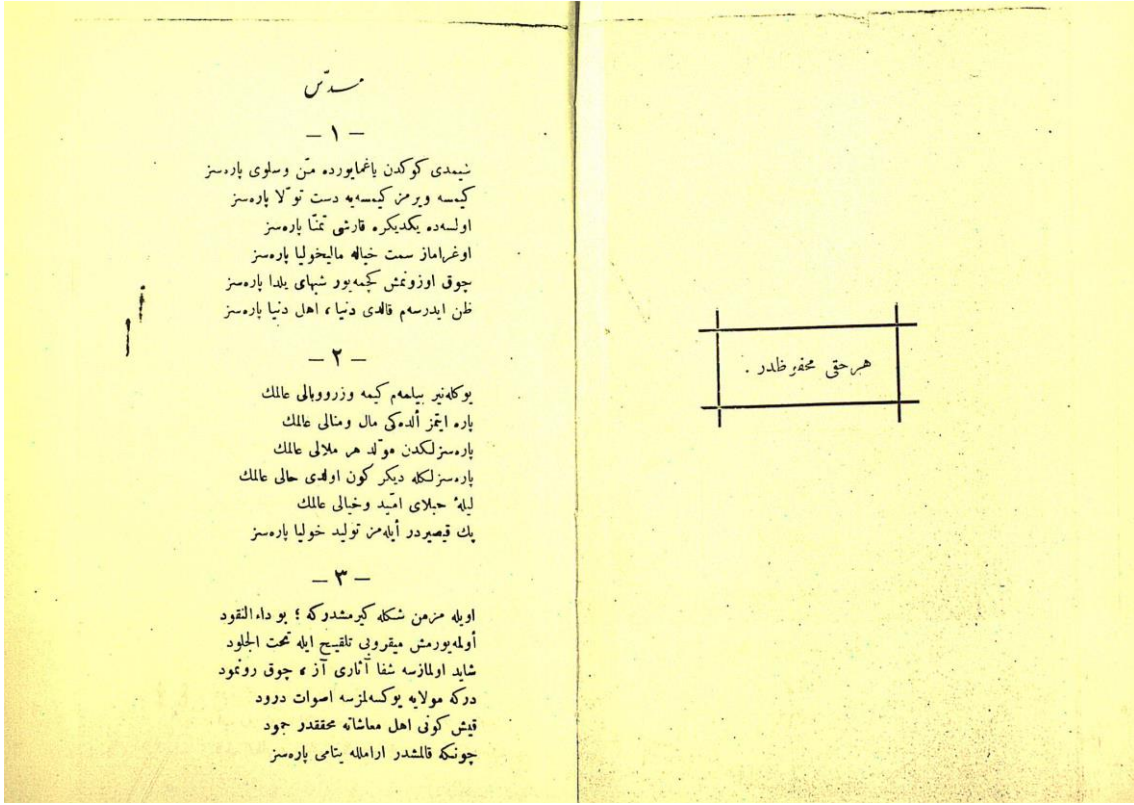 هر حقی محفوظدر .
مسدّس
— ١ —
شیمدی كوكدن یاغمایورده منّ وسلوی پاره‌سز
كیمسه ویرمز كیمسه‌یه دست تولّا پاره‌سز
اولسه‌ده یكدیكره قارشی تمنّا پاره‌سز
اوغراماز سمت خیاله مالیخولیا پاره‌سز
چوق اوزونمش كچمه‌یور شبهای یلدا پاره‌سز
ظن ایدرسه‌م قالدی دنیا ، اهل دنیا پاره‌سز
— ٢ —
یوكله‌نیر بیلمه‌م كیمه وزرووبالی عالمك
پاره ایتمز ألده‌كی مال ومنالی عالمك
پاره‌سزلكدن مولّد هر ملالی عالمك
پاره‌سزلكله دیكر كون اولدی حالی عالمك
لیلهٔ حبلای امّید وخیالی عالمك
پك قیصیردر أیله‌مز تولید خولیا پاره‌سز
— ٣ —
اویله مزمن شكله كیرمشدركه ؛ بو داءالنقود
أولمه‌یورمش میقروبی تلقیح ایله تحت الجلود
شاید اولمازسه شفا آثاری آز ، چوق رونمود
دركه مولایه یوكسه‌لمزسه اصوات درود
قیش كونی اهل معاشاته محققدر جمود
چونكه قالمشدر ارامله یتامی پاره‌سز